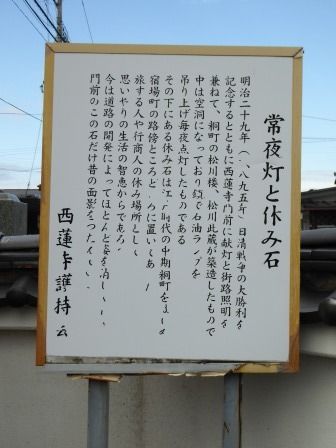 常夜灯と休み石
明治二十九年（一、八九五年、日清戦争の大勝利を
記念するとともに西蓮寺門前に献灯と街路照明を
兼ねて、桐町の松川楼、松川此蔵が築造したもので
中は空洞になっており綱で石油ランプを
吊り上げ毎夜点灯したものである
その下にある休み石は江戸時代の中期桐町を
宿場町の路傍ところどころに置いてあ
旅する人や行商人の休み場所とし
思いやりの生活の智恵からであろ
今は道路の開発によってほとんど姿を消し
門前のこの石だけ昔の面影を
西蓮寺護持会